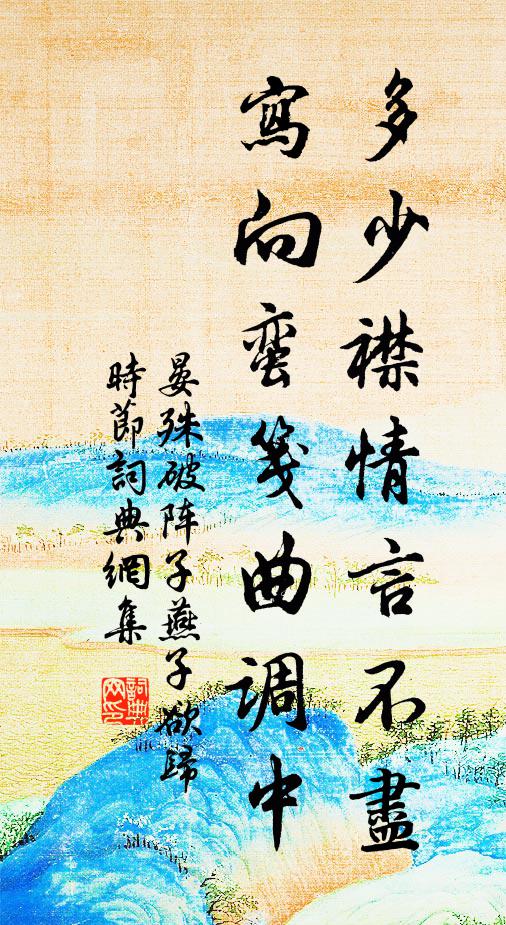 多少襟情言不盡
寫向蛮箋曲調中
晏殊破阵子燕子欲歸
時節詞典網集
詞典网印